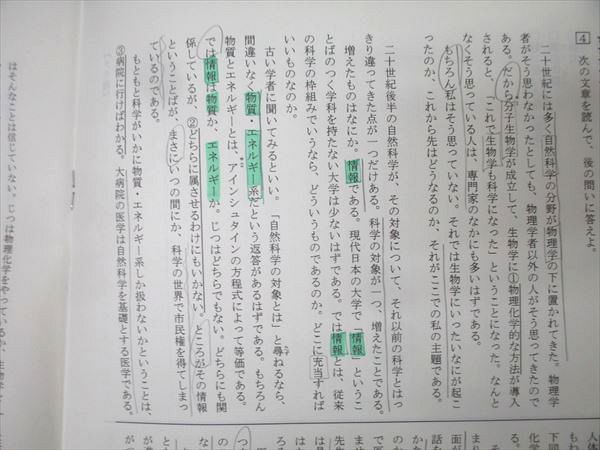 4 次の文章を読んで、後の問いに答えよ。
二十世紀には多く自然科学の分野が物理学の下に置かれてきた。物理学
者がそう思わなかったとしても、物理学者以外の人がそう思ってきたので
ある。だから分子生物学が成立して、生物学に①物理化学的な方法が導入
されると、「これで生物学も科学になった」ということになった。なんと
なくそう思っている人は、専門家のなかにも多いはずである。
もちろん私はそう思っていない。それでは生物学にいったいなにが起こ
ったのか、これから先はどうなるのか、それがここでの私の主題である。
二十世紀後半の自然科学が、その対象について、それ以前の科学とはっ
きり違ってきた点が一つだけある。科学の対象が一つ、増えたことである。
増えたものはなにか。情報である。現代日本の大学で「情報」というこ
とばのつく学科を持たない大学は少ないはずである。では情報とは、従来
の科学の枠組みでいうなら、どういうものであるのか。どこに充当すれば
いいものなのか。
古い学者に聞いてみるといい。「自然科学の対象とは」と尋ねるなら、
間違いなく物質・エネルギー系だという返答があるはずである。もちろん
物質とエネルギーとは、アインシュタインの方程式によって等価である。
では情報は物質か、エネルギーか。じつはどちらでもない。どちらにも関
係しているが、②どちらに属させるわけにもいかない。ところがその情報
ということばが、まさにいつの間にか、科学の世界で市民権を得てしまっ
ているのである。
もともと科学がいかに物質・エネルギー系しか扱わないかということは、
③病院に行けばわかる。大病院の医学は自然科学を基礎とする医学である。
はそんなことは信じていない。じつは物理化学をやっているか、生物学